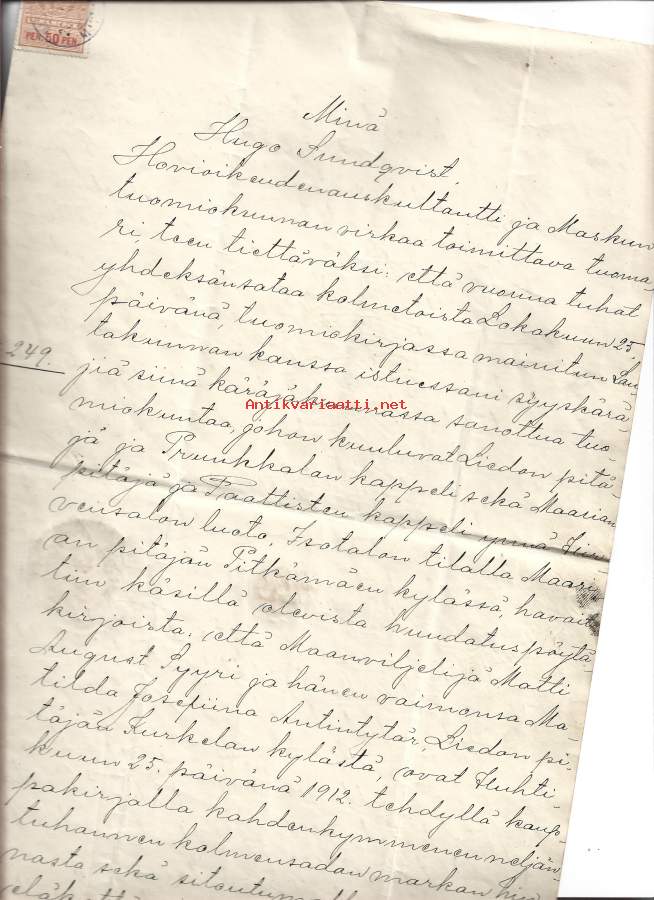 PEN. 50 PEN
Minä
Hugo Sundqvist,
Hovioikeudenauskultantti ja Maskun
tuomiokunnan virkaa toimittava tuoma-
ri, teen tiettäväksi: että vuonna tuhat
yhdeksänsataa kolmetoista Lokakuun 25.
päivänä, tuomiokirjassa mainitun Lau-
takunnan kanssa istuessani syyskärä-
249.
jiä siinä käräjäkunnassa sanottua tuo-
Antikvariaatti.net
miokuntaa, johon kuuluvat Liedon pitä-
jä ja Prunkkalan kappeli sekä Maarian
pitäjä ja Paattisten kappeli ynnä Hir-
vensalon luoto, Isotalon tilalla Maari-
an pitäjän Pitkämäen kylässä, havait-
tiin käsillä olevista huudatuspöytä-
kirjoista, että Maanviljelijä Matti
August Pyyri ja hänen vaimonsa Ma-
tilda Josefiina Antintytär, Liedon pi-
täjän Kurkelan kylästä, ovat Huhti-
kuun 25. päivänä 1912. tehdyllä kaup-
pakirjalla kahdenkymmenen neljän-
tuhannen kolmensadan markan hin-
nasta sekä